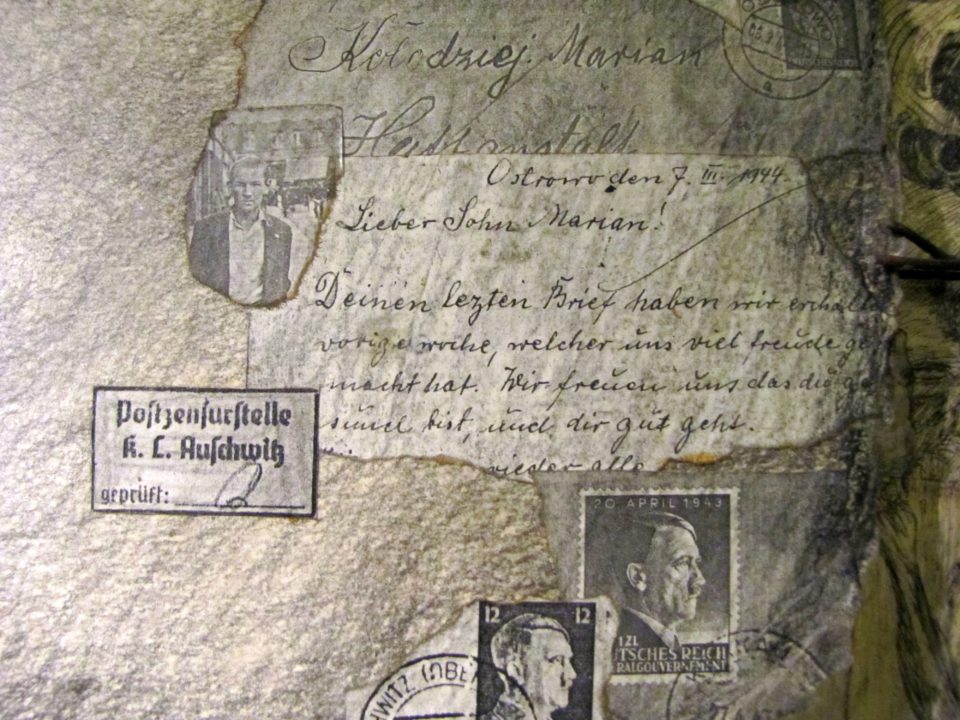 Kołodziej. Marian
DEUTSCHES REICH
Haftanstalt
Ostrowo den 7. III. 1944.
Lieber Sohn Marian!
Deinen lezten Brief haben wir erhalt
vorige woche, welcher uns viel freude ge
macht hat. Wir freuen uns das du ge
sund bist, und dir gut geht.
wieder alle
Postzensurstelle
K. L. Auschwitz
geprüft:
20 APRIL 1943
1ZL
TSCHES REICH
RALGOUVERNEMENT
12 12
HWITZ (OBE